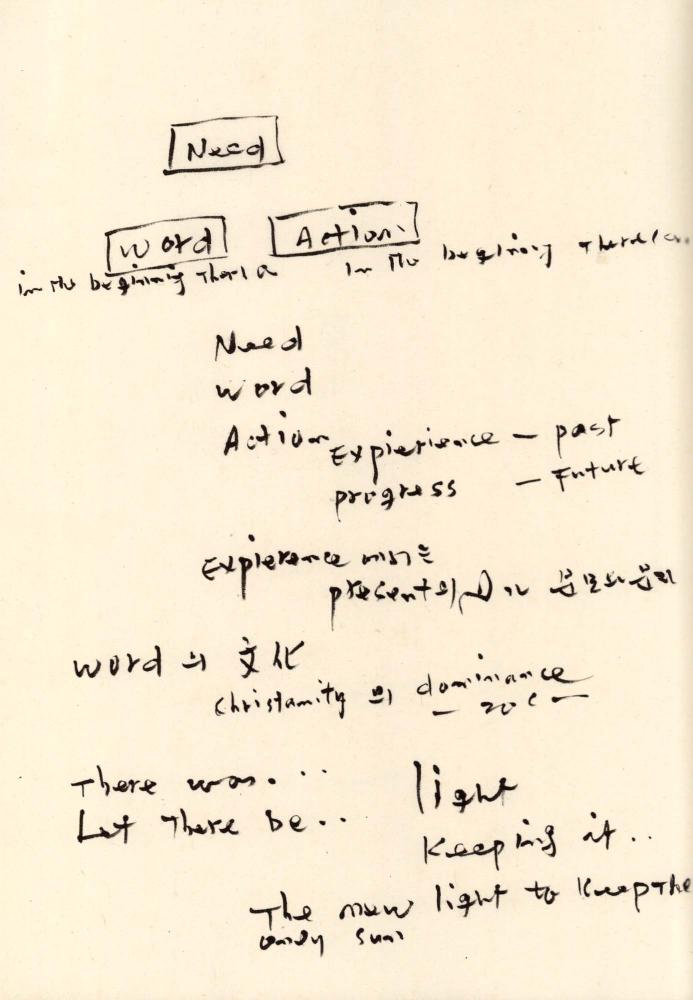 Need
Word Action
in the beginning There a in the beginning There
Need
Word
Action Expierience - past
progress - Future
Expierence
present의
word의 文化
Christianity의 dominance
- 20C -
There was... light
Let There be.. Keeping it..
The new light to Keep The
only sun